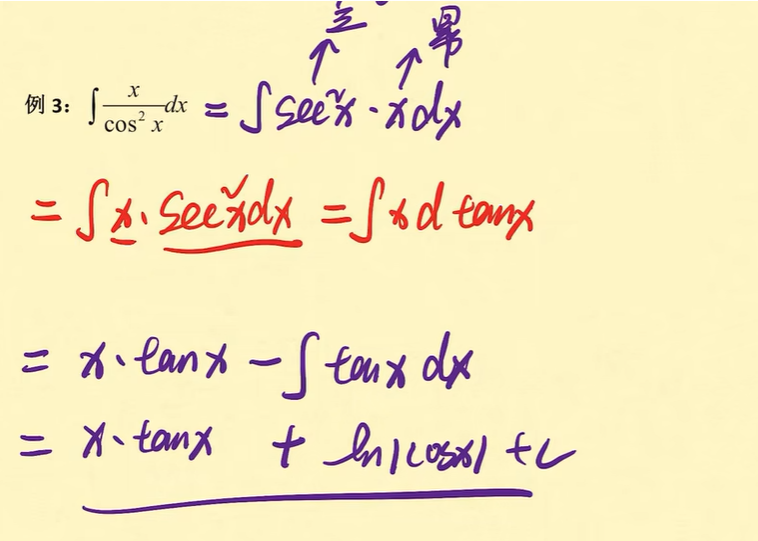 三 幂
例 3: ∫ x/cos² x dx = ∫ sec²x · x dx
= ∫ x · sec²x dx = ∫ x d tanx
= x · tanx − ∫ tanx dx
= x · tanx + ln|cosx| + C